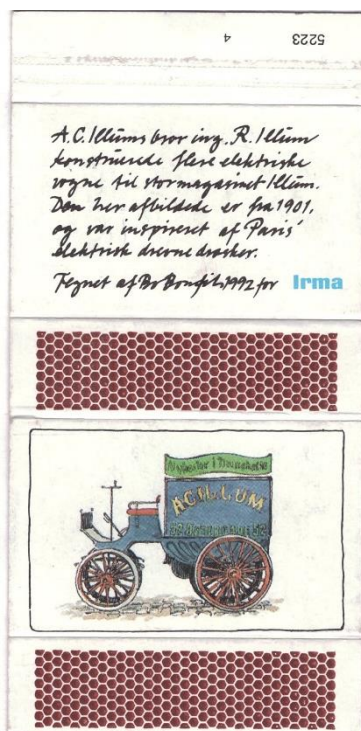 4 5223
A.C. Illums bror ing. R. Illum
konstruerede flere elektriske
vogne til stormagasinet Illum.
Den her afbildede er fra 1901,
og var inspireret af Paris'
elektrisk drevne drosker.
Tegnet af Bo Bonfils 1992 for Irma
A.C. ILLUM